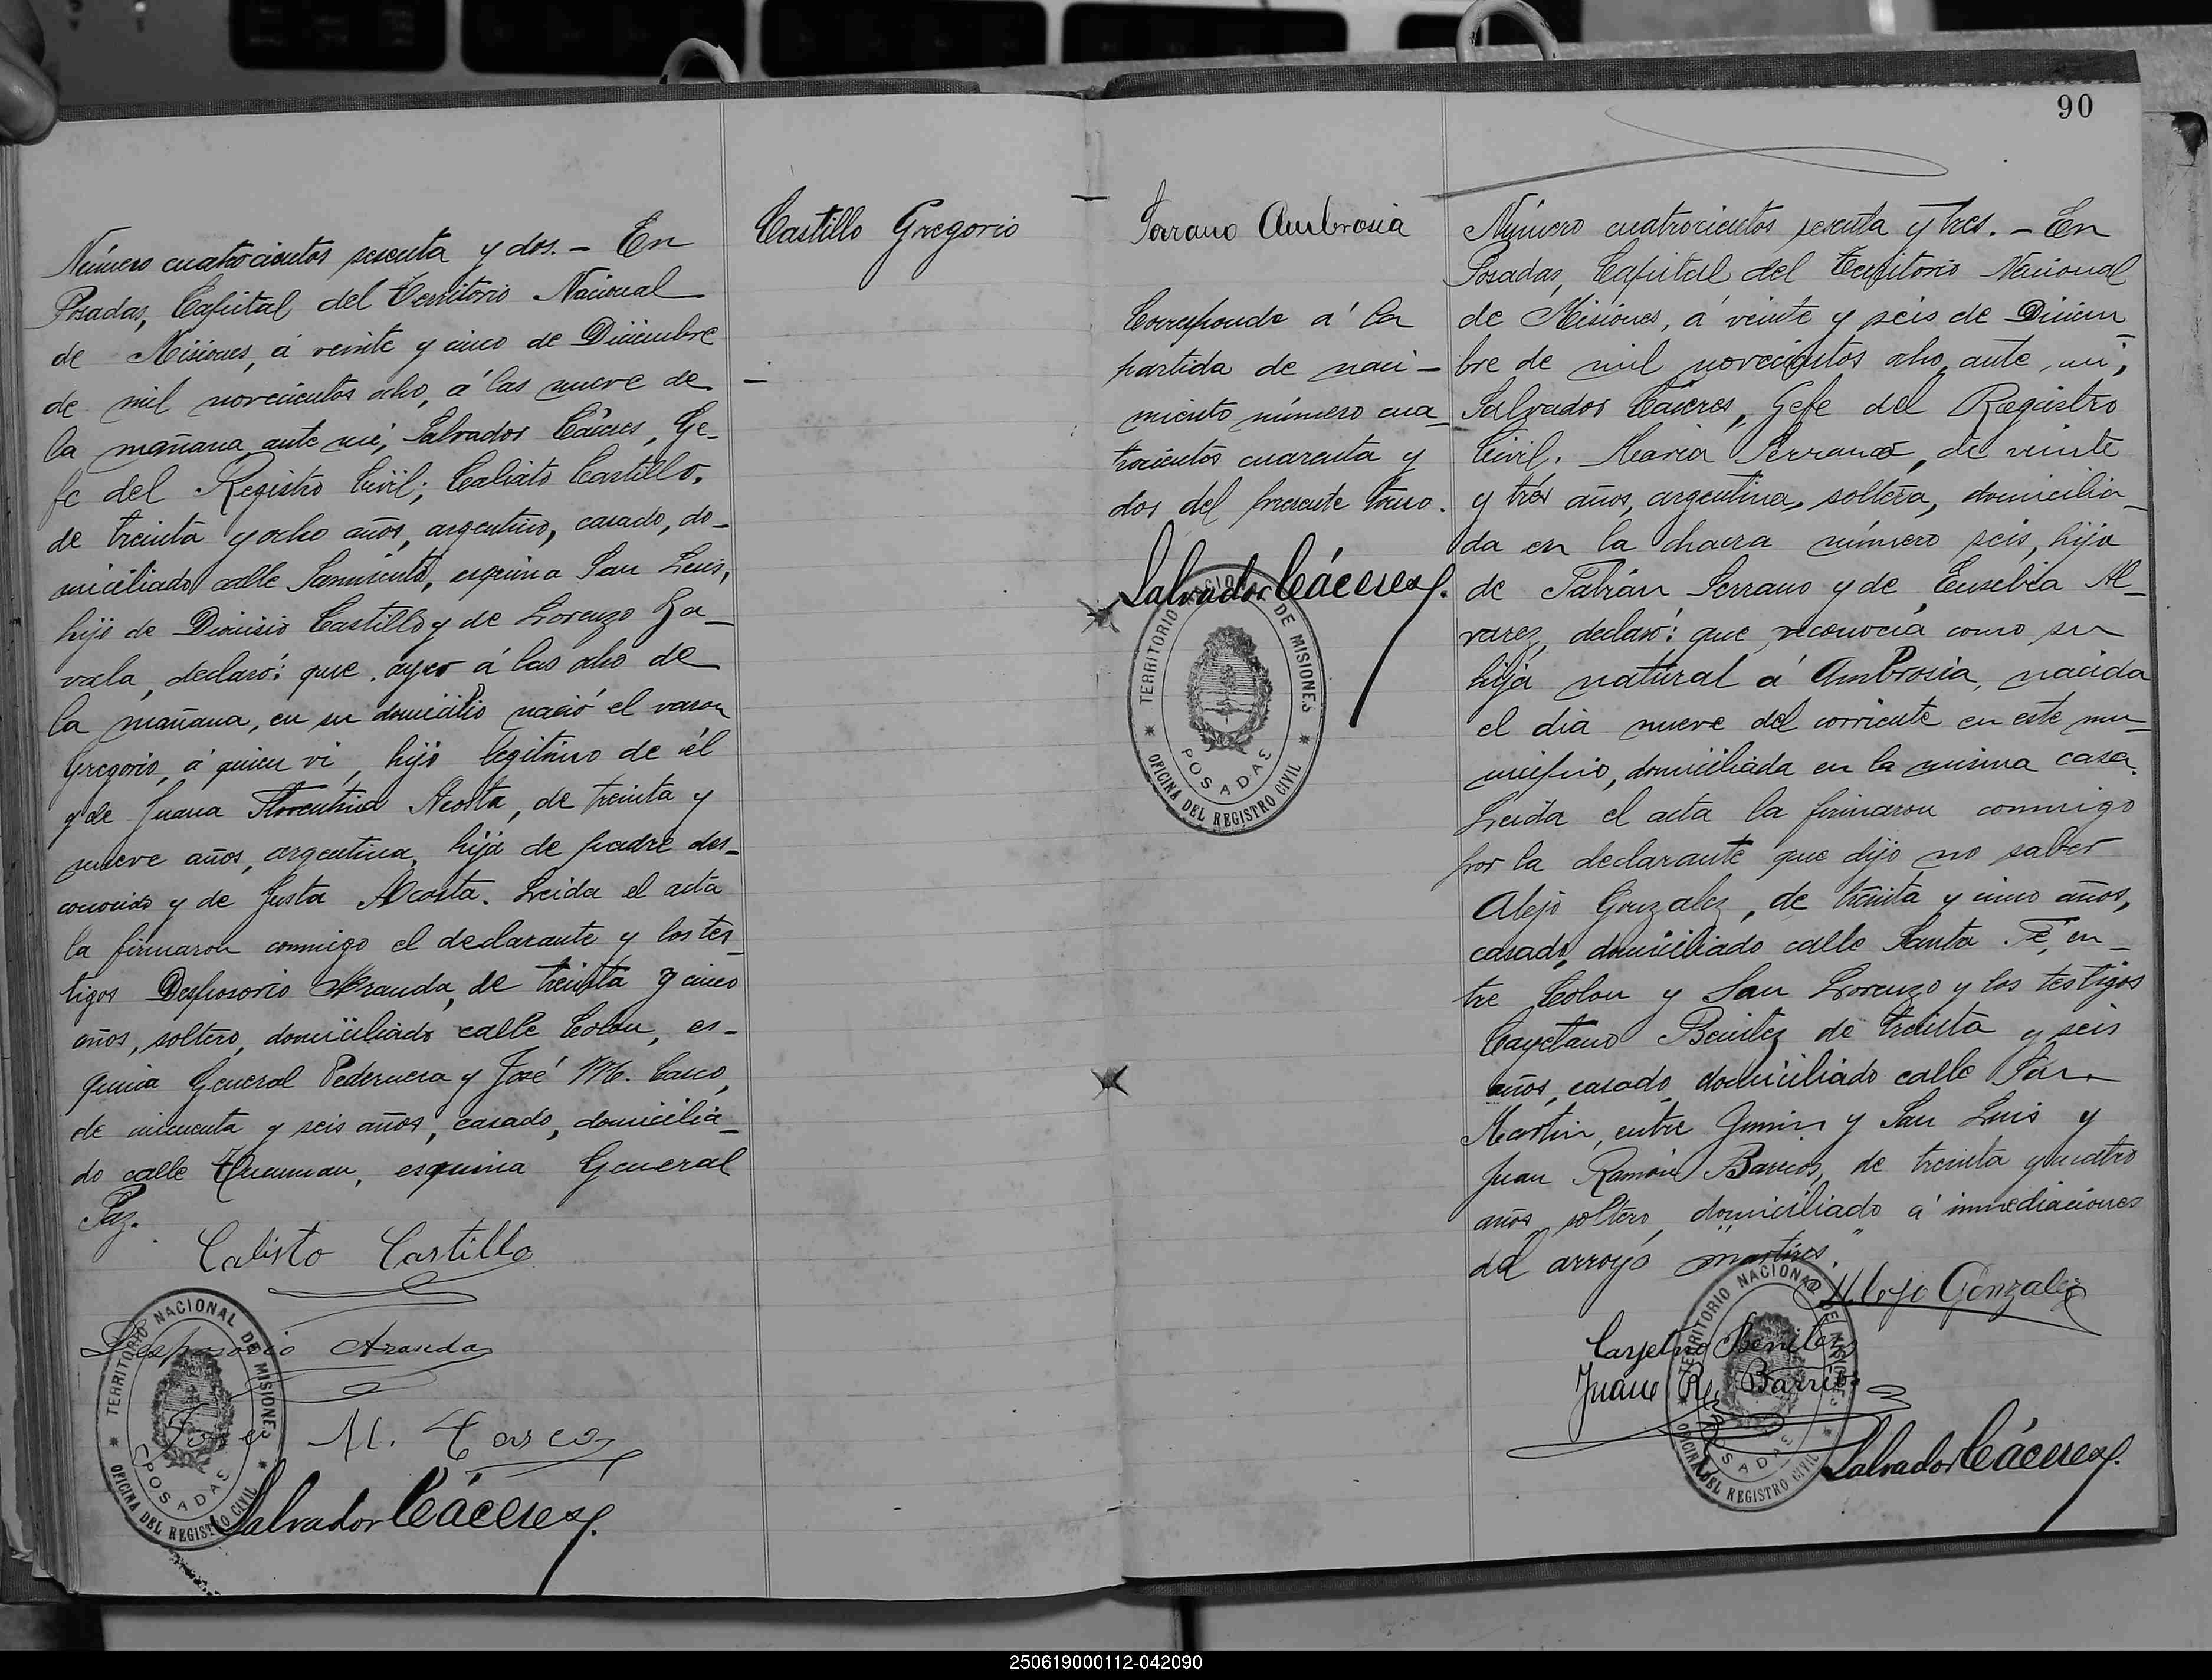 Número cuatrocientos sesenta y dos. – En
Posadas, Capital del Territorio Nacional
de Misiones, á veinte y cinco de Diciembre
de mil novecientos ocho, á las nueve de
la mañana, ante mí, Salvador Cáceres, Ge-
fe del Registro Civil; Calisto Castillo,
de treinta y ocho años, argentino, casado, do-
miciliado calle Sarmiento, esquina San Luis,
hijo de Dionisio Castillo y de Lorenzo Za-
vala, declaró: que ayer á las ocho de
la mañana, en su domicilio nació el varon
Gregorio, á quien ví, hijo legítimo de él
y de Juana Florentina Acosta, de treinta y
nueve años, argentina, hija de padre des-
conocido y de Justa Acosta. Leida el acta
la firmaron conmigo el declarante y los tes-
tigos Desposorio Aranda, de treinta y cinco
años, soltero, domiciliado calle Colon, es-
quina General Pedernera y José M. Casco,
de cincuenta y seis años, casado, domicilia-
do calle Tucuman, esquina General
Paz.
Calisto Castillo
Desposorio Aranda
José M. Casco
Salvador Cáceres
TERRITORIO NACIONAL DE MISIONES
POSADAS
OFICINA DEL REGISTRO CIVIL
Castillo Gregorio
90
Sarano Ambrosia
Corresponde á la
partida de naci-
miento número cua-
trocientos cuarenta y
dos del presente tomo.
Salvador Cáceres
TERRITORIO NACIONAL DE MISIONES
POSADAS
OFICINA DEL REGISTRO CIVIL
Número cuatrocientos sesenta y tres. – En
Posadas, Capital del Territorio Nacional
de Misiones, á veinte y seis de Diciem-
bre de mil novecientos ocho, ante mí,
Salvador Cáceres, Gefe del Registro
Civil. Maria Serrano, de veinte
y tres años, argentina, soltera, domicilia-
da en la chacra número seis, hija
de Fabián Serrano y de Eusebia Al-
varez, declaró: que reconocía como su
hija natural á Ambrosia, nacida
el dia nueve del corriente en este mu-
nicipio, domiciliada en la misma casa.
Leida el acta la firmaron conmigo
por la declarante que dijo no saber
Alejo Gonzalez, de treinta y cinco años,
casado, domiciliado calle Santa Fé, en-
tre Colon y San Lorenzo y los testigos
Cayetano Benitez de treinta y seis
años, casado, domiciliado calle San
Martin, entre Junin y San Luis y
Juan Ramón Barrios, de treinta y cuatro
años, soltero, domiciliado á inmediaciones
del arroyo "martires".
Alejo Gonzalez
Cayetno Benitez
Juan R. Barrios
Salvador Cáceres
TERRITORIO NACIONAL DE MISIONES
POSADAS
OFICINA DEL REGISTRO CIVIL
250619000112-042090